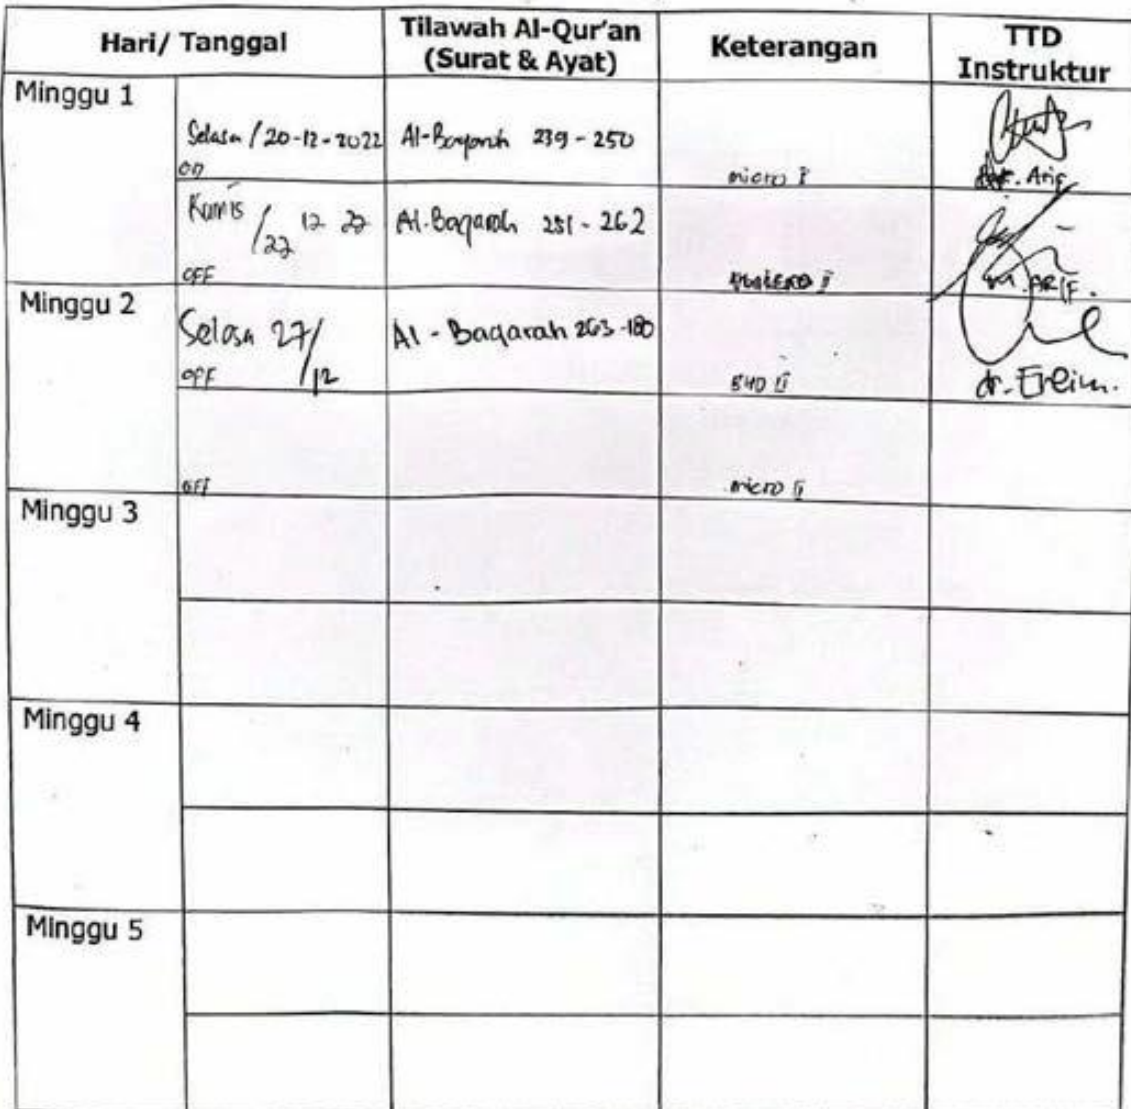 Hari/ Tanggal
Tilawah Al-Qur'an
(Surat & Ayat)
Keterangan
TTD
Instruktur
Minggu 1
Selasa / 20-12-2022
Al-Baqarah 239 - 250
on
micro I
Arif
Kamis / 22 12 22
Al-Baqarah 251 - 262
OFF
II
M. ARIF.
Minggu 2
Selasa 27/12
Al - Baqarah 263-180
OFF
BHD II
dr.
OFF
micro II
Minggu 3
Minggu 4
Minggu 5